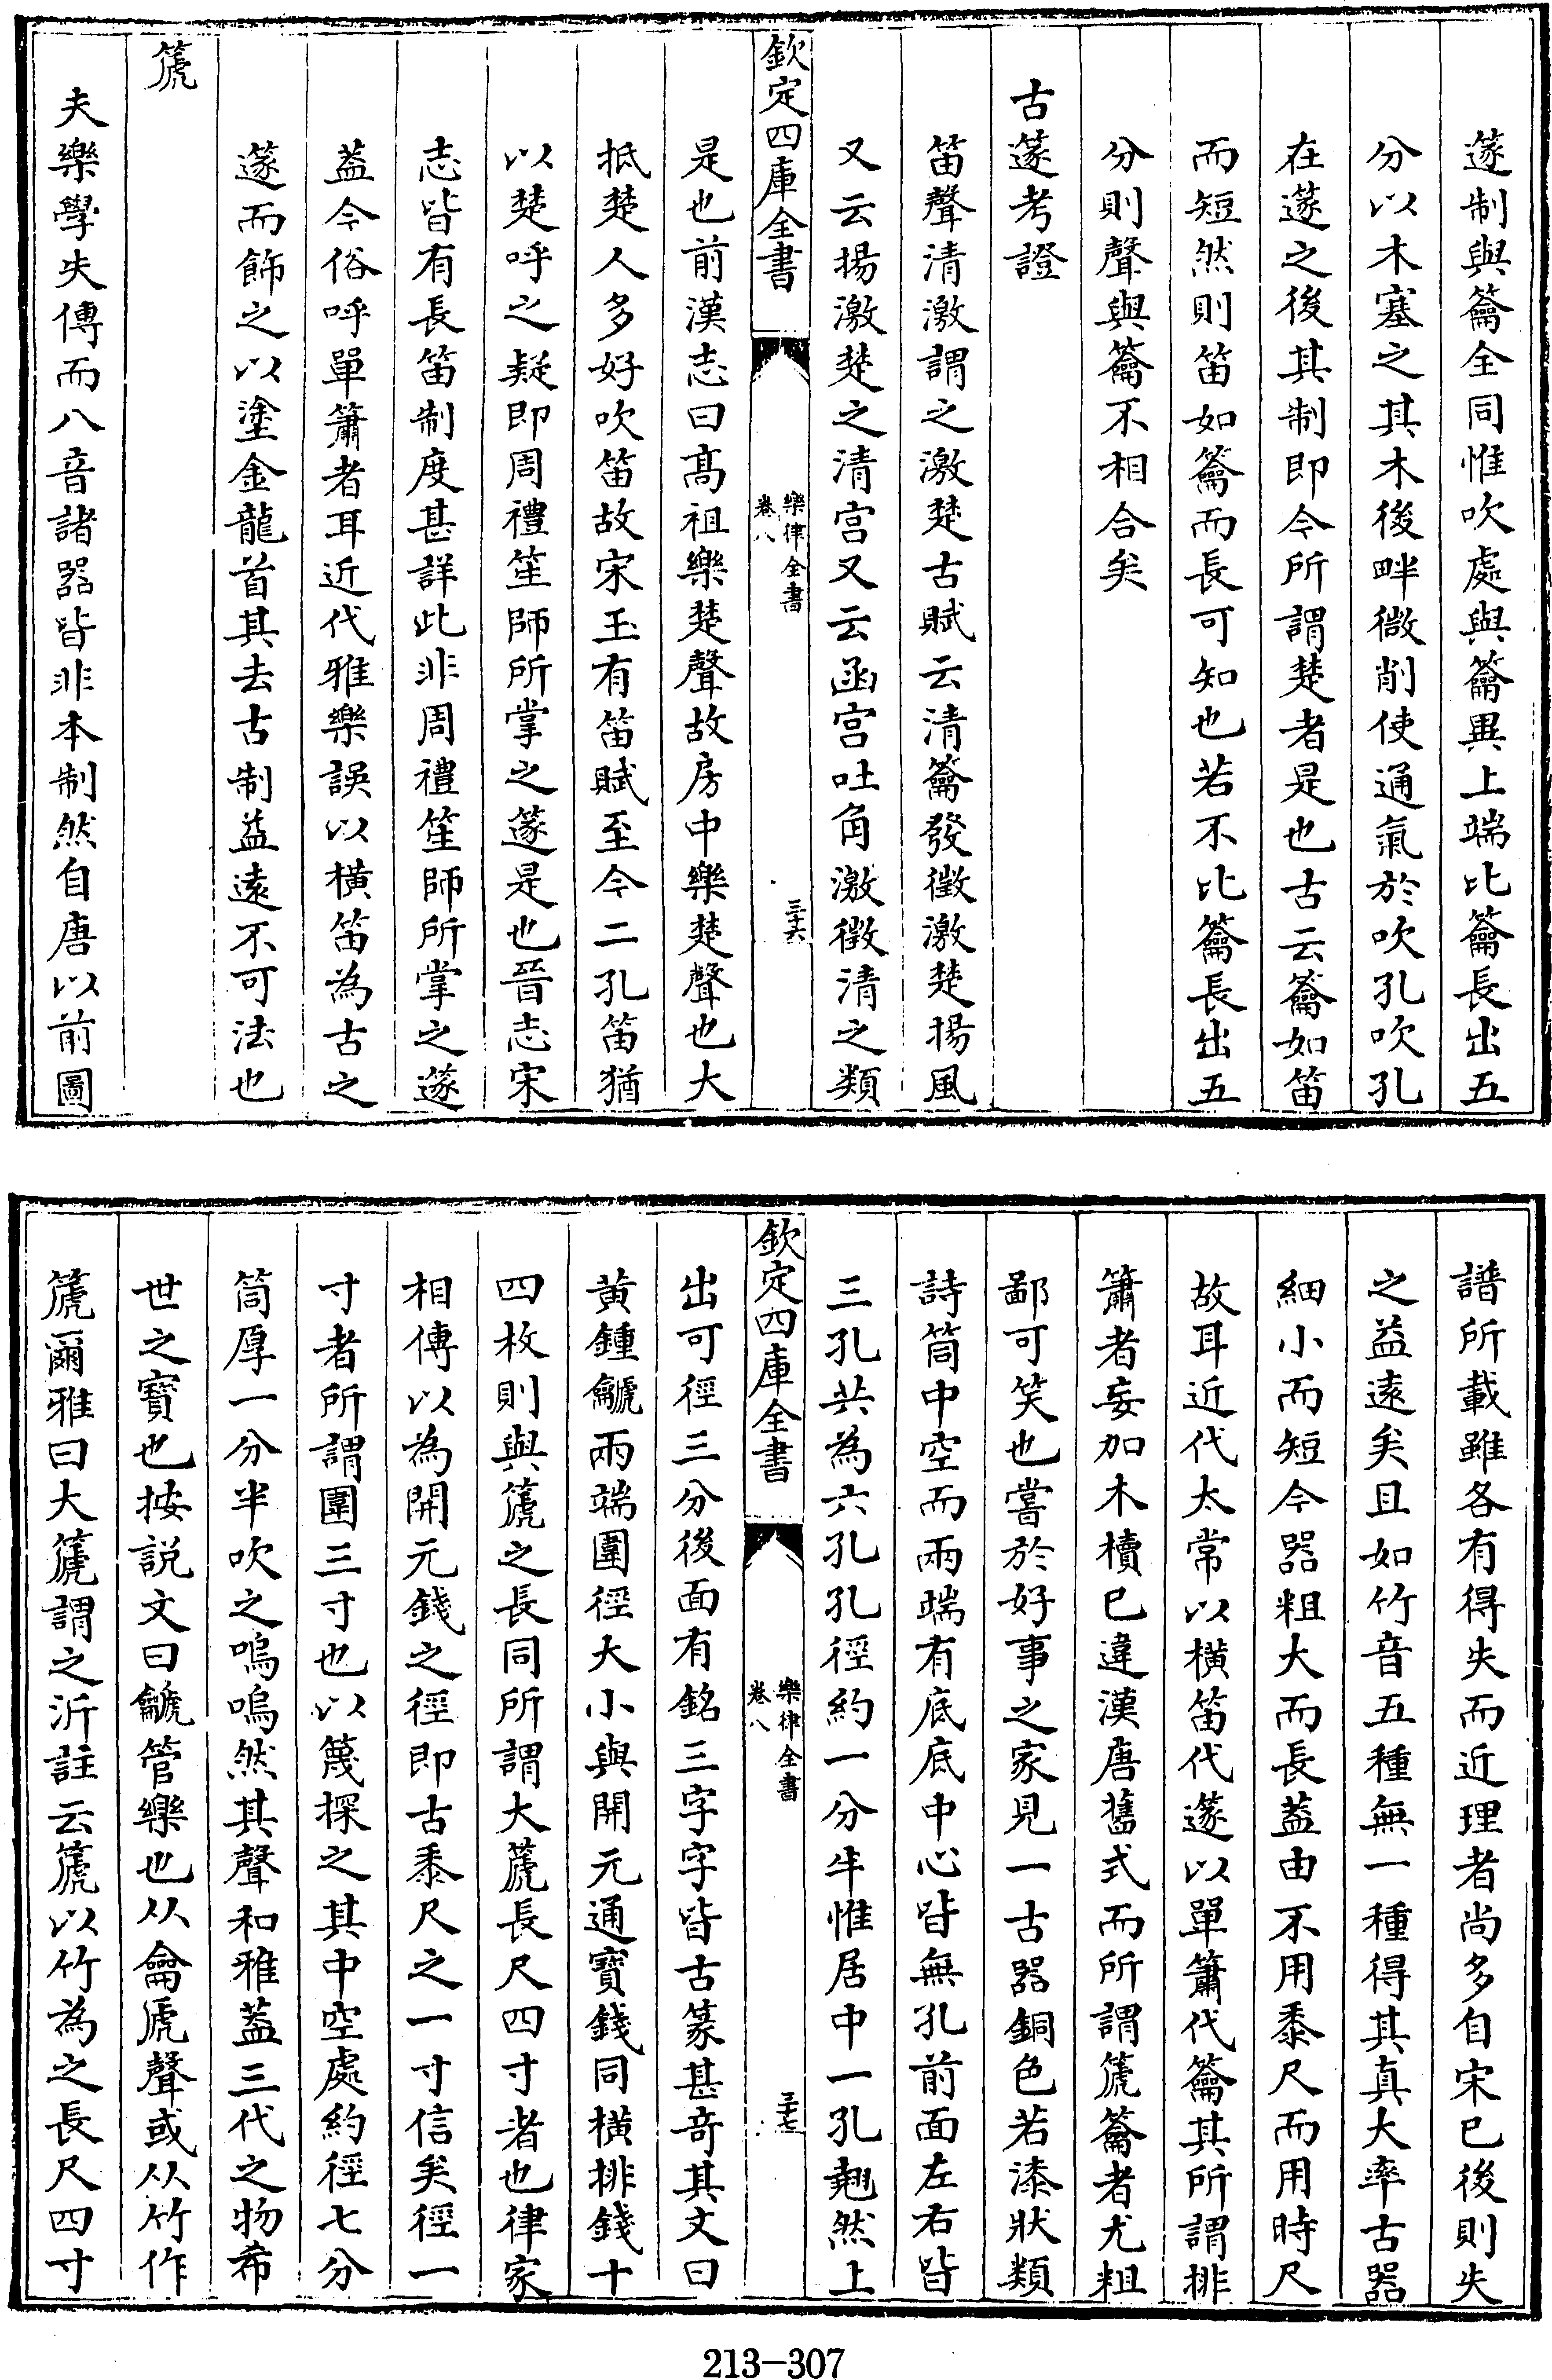 篴制與籥全同惟吹處與籥異上端比籥長出五
分以木塞之其木後畔微削使通氣於吹孔吹孔
在篴之後其制即今所謂楚者是也古云籥如笛
而短然則笛如籥而長可知也若不比籥長出五
分則聲與籥不相合矣
古篴考證
笛聲清激謂之激楚古賦云清籥發徵激楚揚風
又云揚激楚之清宮又云函宮吐角激徵清之類
欽定四庫全書
樂律全書
卷八
三十六
是也前漢志曰高祖樂楚聲故房中樂楚聲也大
抵楚人多好吹笛故宋玉有笛賦至今二孔笛猶
以楚呼之疑即周禮笙師所掌之篴是也晉志宋
志皆有長笛制度甚詳此非周禮笙師所掌之篴
蓋今俗呼單簫者耳近代雅樂誤以橫笛為古之
篴而飾之以塗金龍首其去古制益遠不可法也
篪
夫樂學失傳而八音諸器皆非本制然自唐以前圖
譜所載雖各有得失而近理者尚多自宋已後則失
之益遠矣且如竹音五種無一種得其真大率古器
細小而短今器粗大而長蓋由不用黍尺而用時尺
故耳近代太常以橫笛代篴以單簫代籥其所謂排
簫者妄加木櫝已違漢唐舊式而所謂篪籥者尤粗
鄙可笑也嘗於好事之家見一古器銅色若漆狀類
詩筒中空而兩端有底底中心皆無孔前面左右皆
三孔共為六孔孔徑約一分半惟居中一孔翹然上
欽定四庫全書
樂律全書
卷八
三十七
出可徑三分後面有銘三字字皆古篆甚奇其文曰
黄鍾龥兩端圍徑大小與開元通寶錢同橫排錢十
四枚則與篪之長同所謂大篪長尺四寸者也律家
相傳以為開元錢之徑即古黍尺之一寸信矣徑一
寸者所謂圍三寸也以篾探之其中空處約徑七分
筒厚一分半吹之嗚嗚然其聲和雅蓋三代之物希
世之寶也按說文曰䶵管樂也从龠虒聲或从竹作
篪爾雅曰大篪謂之沂註云篪以竹為之長尺四寸
213-307